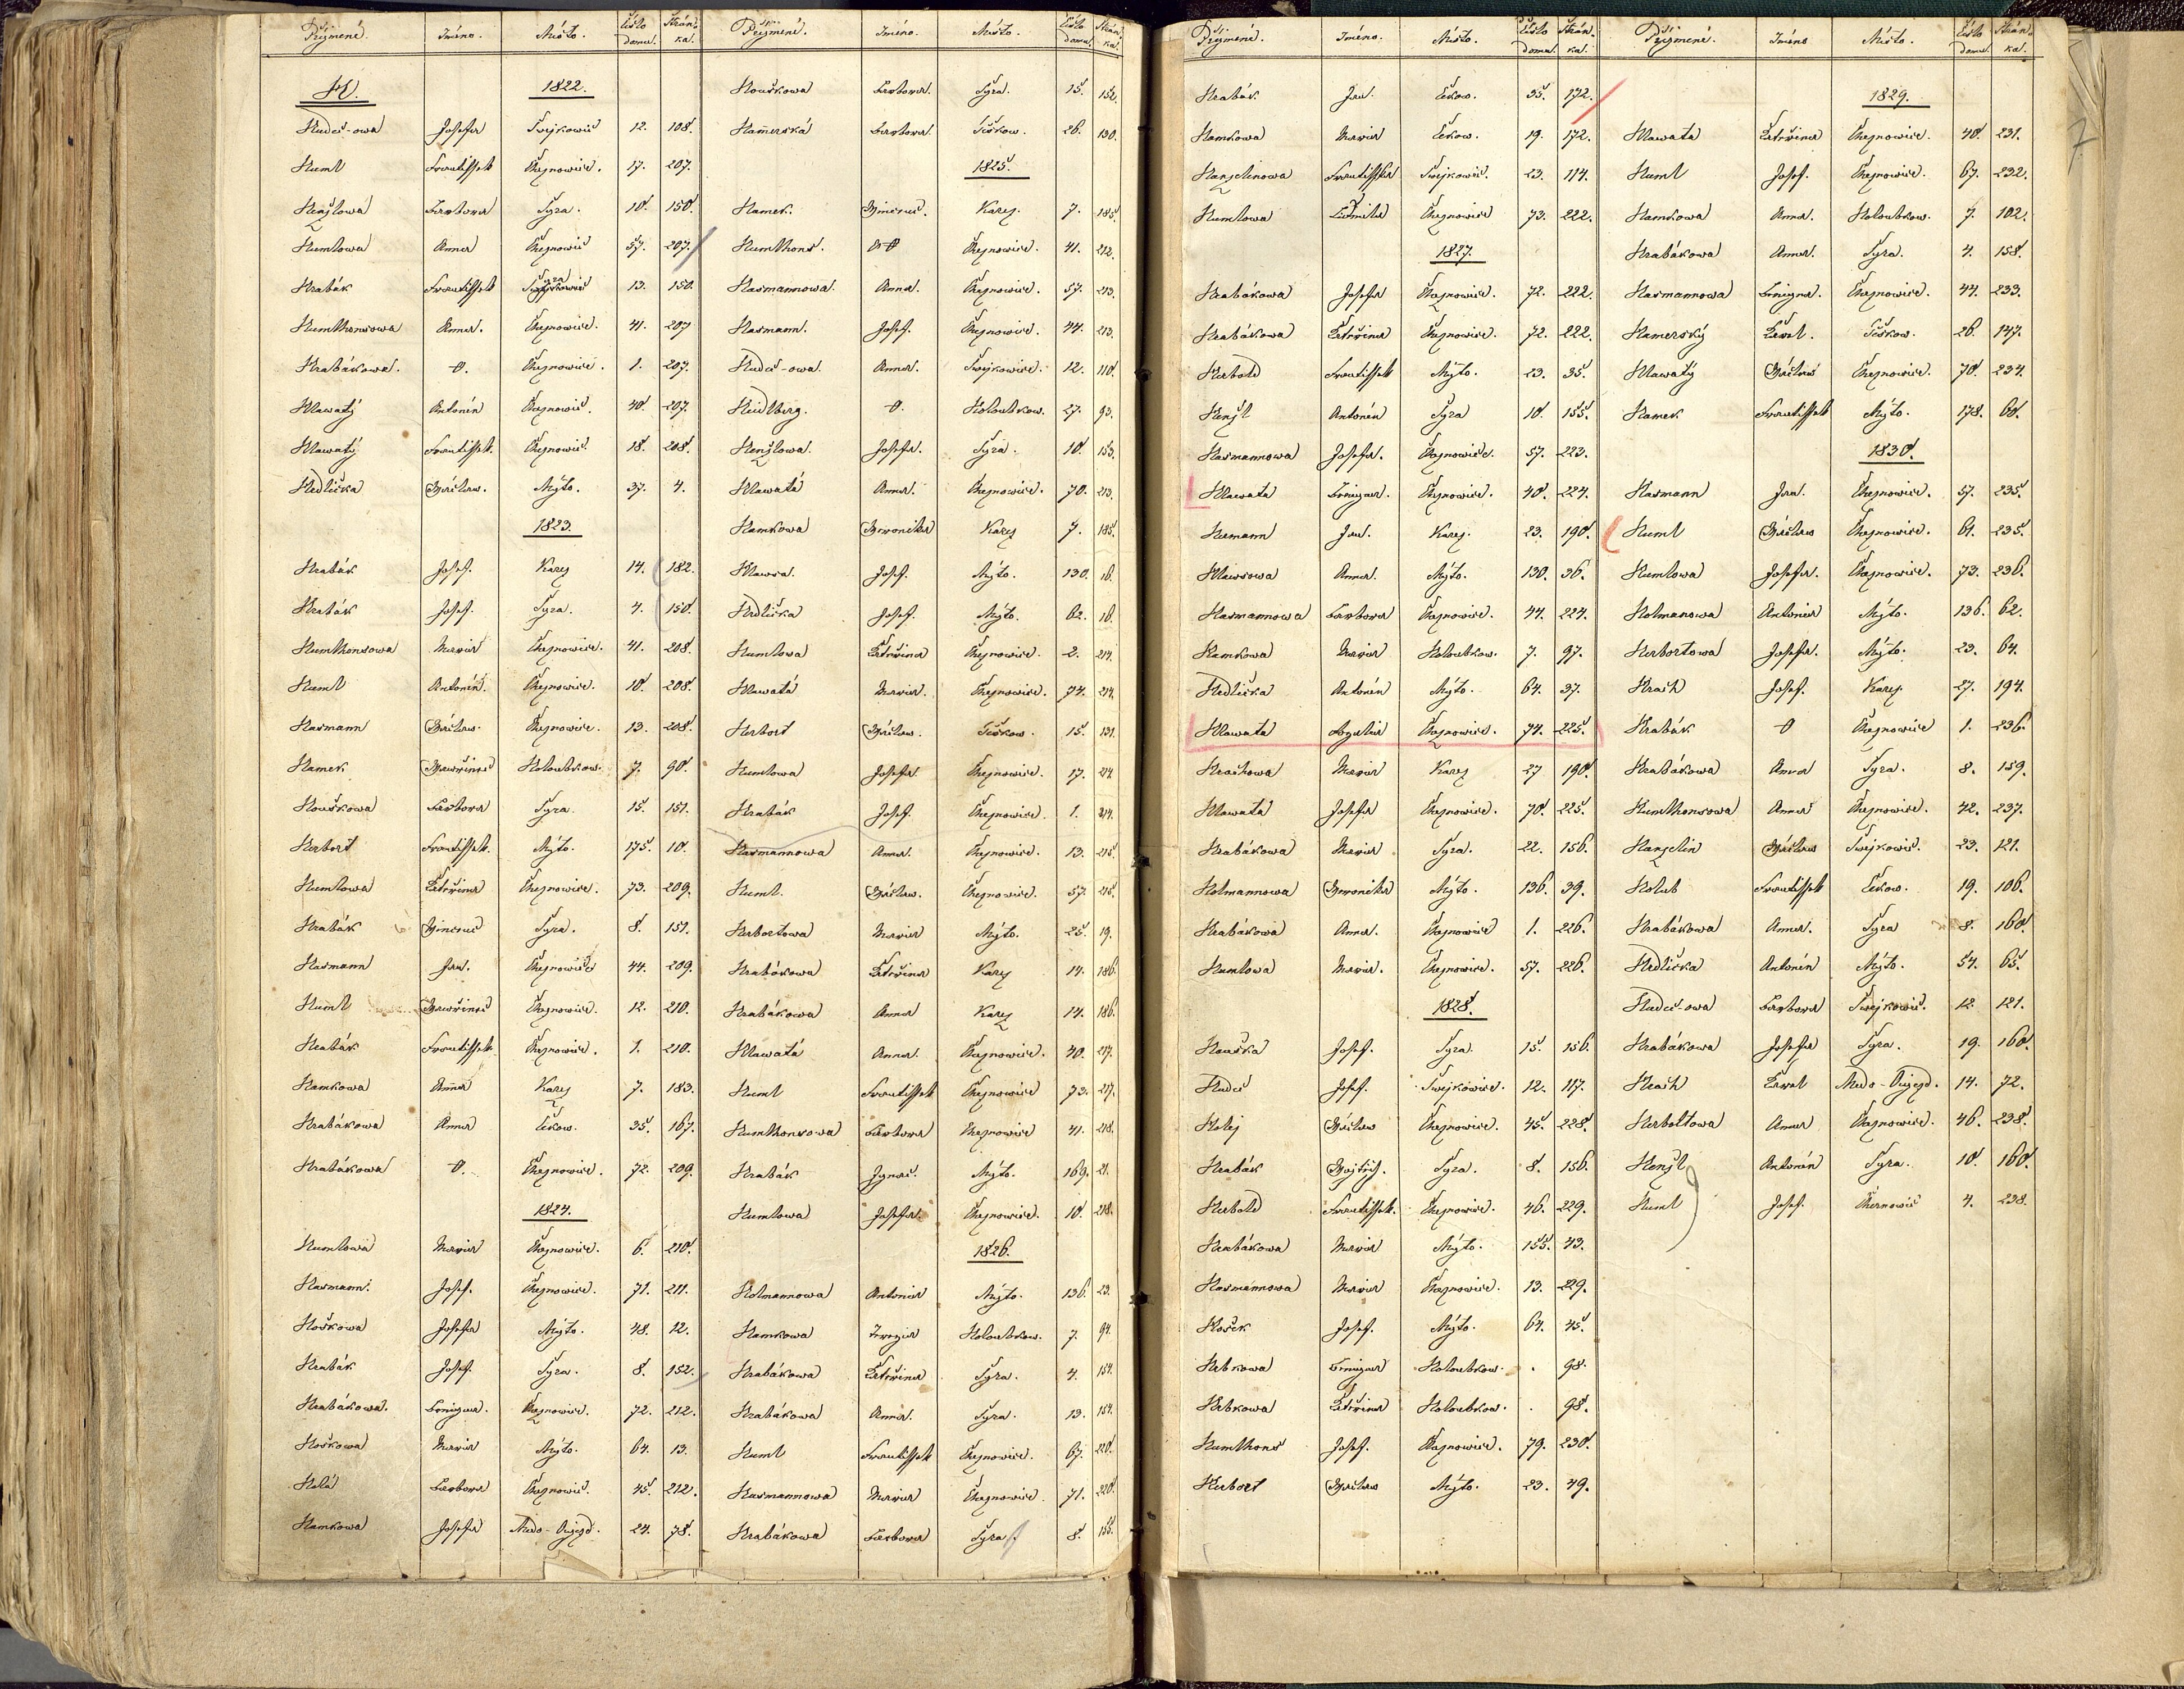 Příjmení. Jméno. Místo. Číslo domu. Strán-ka.
H. 1822.
Hudec-owa Josefa Swejkowic 12. 108.
Huml Frantissek Chejnowice. 17. 207.
Henzlowa Barbora Syra. 10. 150.
Humlowa Anna Chejnowic 57. 207.
Hrabák Frantissek Syra 13. 150.
Humlhonsowa Anna. Chejnowice. 41. 207
Hrabákowa. O. Chejnowice. 1. 207.
Hlawatý Antonín Chejnowic. 40. 207.
Hlawatý Frantissek. Chejnowic. 18. 208.
Hedlička Wáclaw. Mýto. 37. 4.
1823.
Hrabák Josef. Karez 14. 182.
Hrabák Josef. Syra. 4. 150.
Humlhonsowa Maria Chejnowice. 41. 208.
Huml Antonín. Chejnowice. 10. 208.
Hasmann Wáclaw. Chejnowice. 13. 208.
Hamek Wawřinec Holoubkow. 7. 90.
Houškowa Barbora Syra. 15. 151.
Herbort Frantissek. Mýto. 175. 10.
Humlowa Kateřina Chejnowice. 73. 209.
Hrabák Wincenc Syra. 8. 151.
Hasmann Jan. Chejnowice 44. 209.
Huml Wawřinec Chejnowice. 12. 210.
Hrabák Frantissek Chejnowice. 1. 210.
Hamkowa Anna Karez 7. 183.
Hrabákowa Anna Cekow. 35. 167.
Hrabákowa O. Chejnowice. 72. 209.
1824.
Humlowa Maria Chejnowice. 6. 210.
Hasmann. Josef. Chejnowice. 71. 211.
Hoškowa Josefa Mýto. 48. 12.
Hrabák Josef. Syra. 8. 152.
Hrabákowa. Františka. Chejnowice. 72. 212.
Hoškowa Maria Mýto. 64. 13.
Holá Barbora Chejnowic. 45. 212.
Hamkowa Josefa Medo-Oujezd. 24. 78.
Příjmení. Jméno. Místo. Číslo domu. Strán-ka.
Houškowa Barbora. Syra. 15. 152.
Hamerská Barbora. Těškow. 26. 130.
1825.
Hamek. Wincenc. Karez. 7. 185.
Humlhons. O Chejnowice. 41. 212.
Hasmannowa. Anna. Chejnowice. 57. 213.
Hasmann. Josef. Chejnowice. 44. 213.
Hudec-owa. Anna. Swejkowice. 12. 110.
Heidlberg. O. Holoubkow. 27. 93.
Henzlowa. Josefa. Syra. 10. 153.
Hlawatá Anna. Chejnowice. 70. 213.
Hamkowa Weronika Karez 7. 185.
Hlawsa. Josef. Mýto. 130. 16.
Hedlička Josef. Mýto. 62. 16.
Humlowa Kateřina Chejnowice. 2. 214.
Hlawatá Maria. Chejnowice. 74. 214.
Herbort Wáclaw. Těškow. 15. 131.
Humlowa Josefa Chejnowice. 17. 214
Hrabák Josef. Chejnowice. 1. 214.
Hasmannowa Anna. Chejnowice. 13. 215.
Huml. Wáclaw. Chejnowice. 57. 215.
Herbortowa Maria Mýto. 25. 19.
Hrabákowa Kateřina Karez 14. 186.
Hrabákowa Anna Karez 14. 186.
Hlawatá Anna. Chejnowice. 40. 217.
Huml Frantissek Chejnowice 73. 217.
Humlhonsowa Barbora Chejnowice 41. 218.
Hrabák Jgnac. Mýto. 169. 21.
Humlowa Josefa. Chejnowice. 10. 218.
1826.
Holmannowa Antonia Mýto. 136. 23.
Hamkowa Terezia Holoubkow. 7. 94.
Hrabákowa Kateřina Syra. 4. 154.
Hrabákowa Anna. Syra. 13. 154.
Huml Frantissek Chejnowice. 67. 220.
Hasmannowa Maria Chejnowice. 71. 220.
Hrabákowa Barbora Syra. 8. 155.
Příjmení. Jméno. Místo. Číslo domu. Strán-ka.
Hrabák Jan. Cekow. 35. 172.
Hamkowa Maria Cekow. 19. 172.
Hanzlinowa Frantisska Swejkowic. 23. 114.
Humlowa Ludmila Chejnowice 73. 222.
1827.
Hrabákowa Josefa Chejnowice. 72. 222.
Hrabákowa Kateřina Chejnowice. 72. 222.
Herbold Frantissek Mýto. 23. 35.
Henzl Antonín Syra 10. 155.
Hasmannowa Josefa. Chejnowice. 57. 223.
Hlawata Františka. Chejnowice. 40. 224.
Hermann Jan. Karez. 23. 190.
Hlawsowa Anna. Mýto. 130. 36.
Hasmannowa Barbora Chejnowice. 44. 224.
Hamkowa Maria Holoubkow. 7. 97.
Hedlička Antonín Mýto. 64. 37.
Hlawata Chejnowice. 74. 225.
Hrachowa Maria Karez 27 190.
Hlawata Josefa Chejnowice. 70. 225.
Hrabákowa Maria Syra. 22. 156.
Holmannowa Weronika Mýto. 136. 39.
Hrabákowa Anna. Chejnowice 1. 226.
Humlowa Maria. Chejnowice. 57. 226.
1828.
Houška Josef. Syra. 15. 156.
Hudec Josef. Swejkowice. 12. 117.
Holej Wáclaw Chejnowice. 45. 228.
Hrabák Wojtěch. Syra. 8. 156.
Herbold Frantissek. Chejnowice. 46. 229.
Hrabákowa Maria Mýto. 155. 43.
Hasmannowa Maria Chejnowice. 13. 229.
Hošek Josef. Mýto. 64. 45.
Hrbkowa Františka Holoubkow. . 98.
Hrbkowa Kateřina Holoubkow. . 98.
Humlhons Josef. Chejnowice. 79. 230.
Herbort Wáclaw Mýto. 23. 49.
Příjmení. Jméno Místo. Číslo domu. Strán-ka.
1829.
Hlawata Kateřina Chejnowice. 40. 231.
Huml Josef. Chejnowice. 67. 232.
Hamkowa Anna. Holoubkow. 7. 102.
Hrabákowa Anna. Syra. 4. 158.
Hasmannowa Františka. Chejnowice. 44. 233.
Hamerský Karel. Těškow. 26. 147.
Hlawatý Wáclaw Chejnowice. 70. 234.
Hamek Frantissek Mýto. 178. 60.
1830.
Hasmann Jan. Chejnowice. 57. 235.
Huml Wáclaw Chejnowice. 61. 235.
Humlowa Josefa. Chejnowice. 73. 236.
Holmanowa Antonia Mýto. 136. 62.
Herbortowa Josefa. Mýto. 23. 64.
Hrach Josef. Karez. 27. 194.
Hrabák O Chejnowice 1. 236.
Hrabákowa Anna Syra. 8. 159.
Humlhonsowa Anna Chejnowice. 42. 237.
Hanzlin Wáclaw Swejkowic. 23. 121.
Holub Frantissek Cekow. 19. 106.
Hrabákowa Anna. Syra 8. 160.
Hedlička Antonín Mýto. 54. 65.
Hudec-owa Barbora Swejkowic. 12. 121.
Hrabákowa Josefa Syra. 19. 160.
Hrach Karel Medo-Oujezd. 14. 72.
Herboltowa Anna Chejnowice. 46. 238.
Henzl Antonín Syra. 10. 160.
Huml Josef. Chejnowic 4. 238.
7